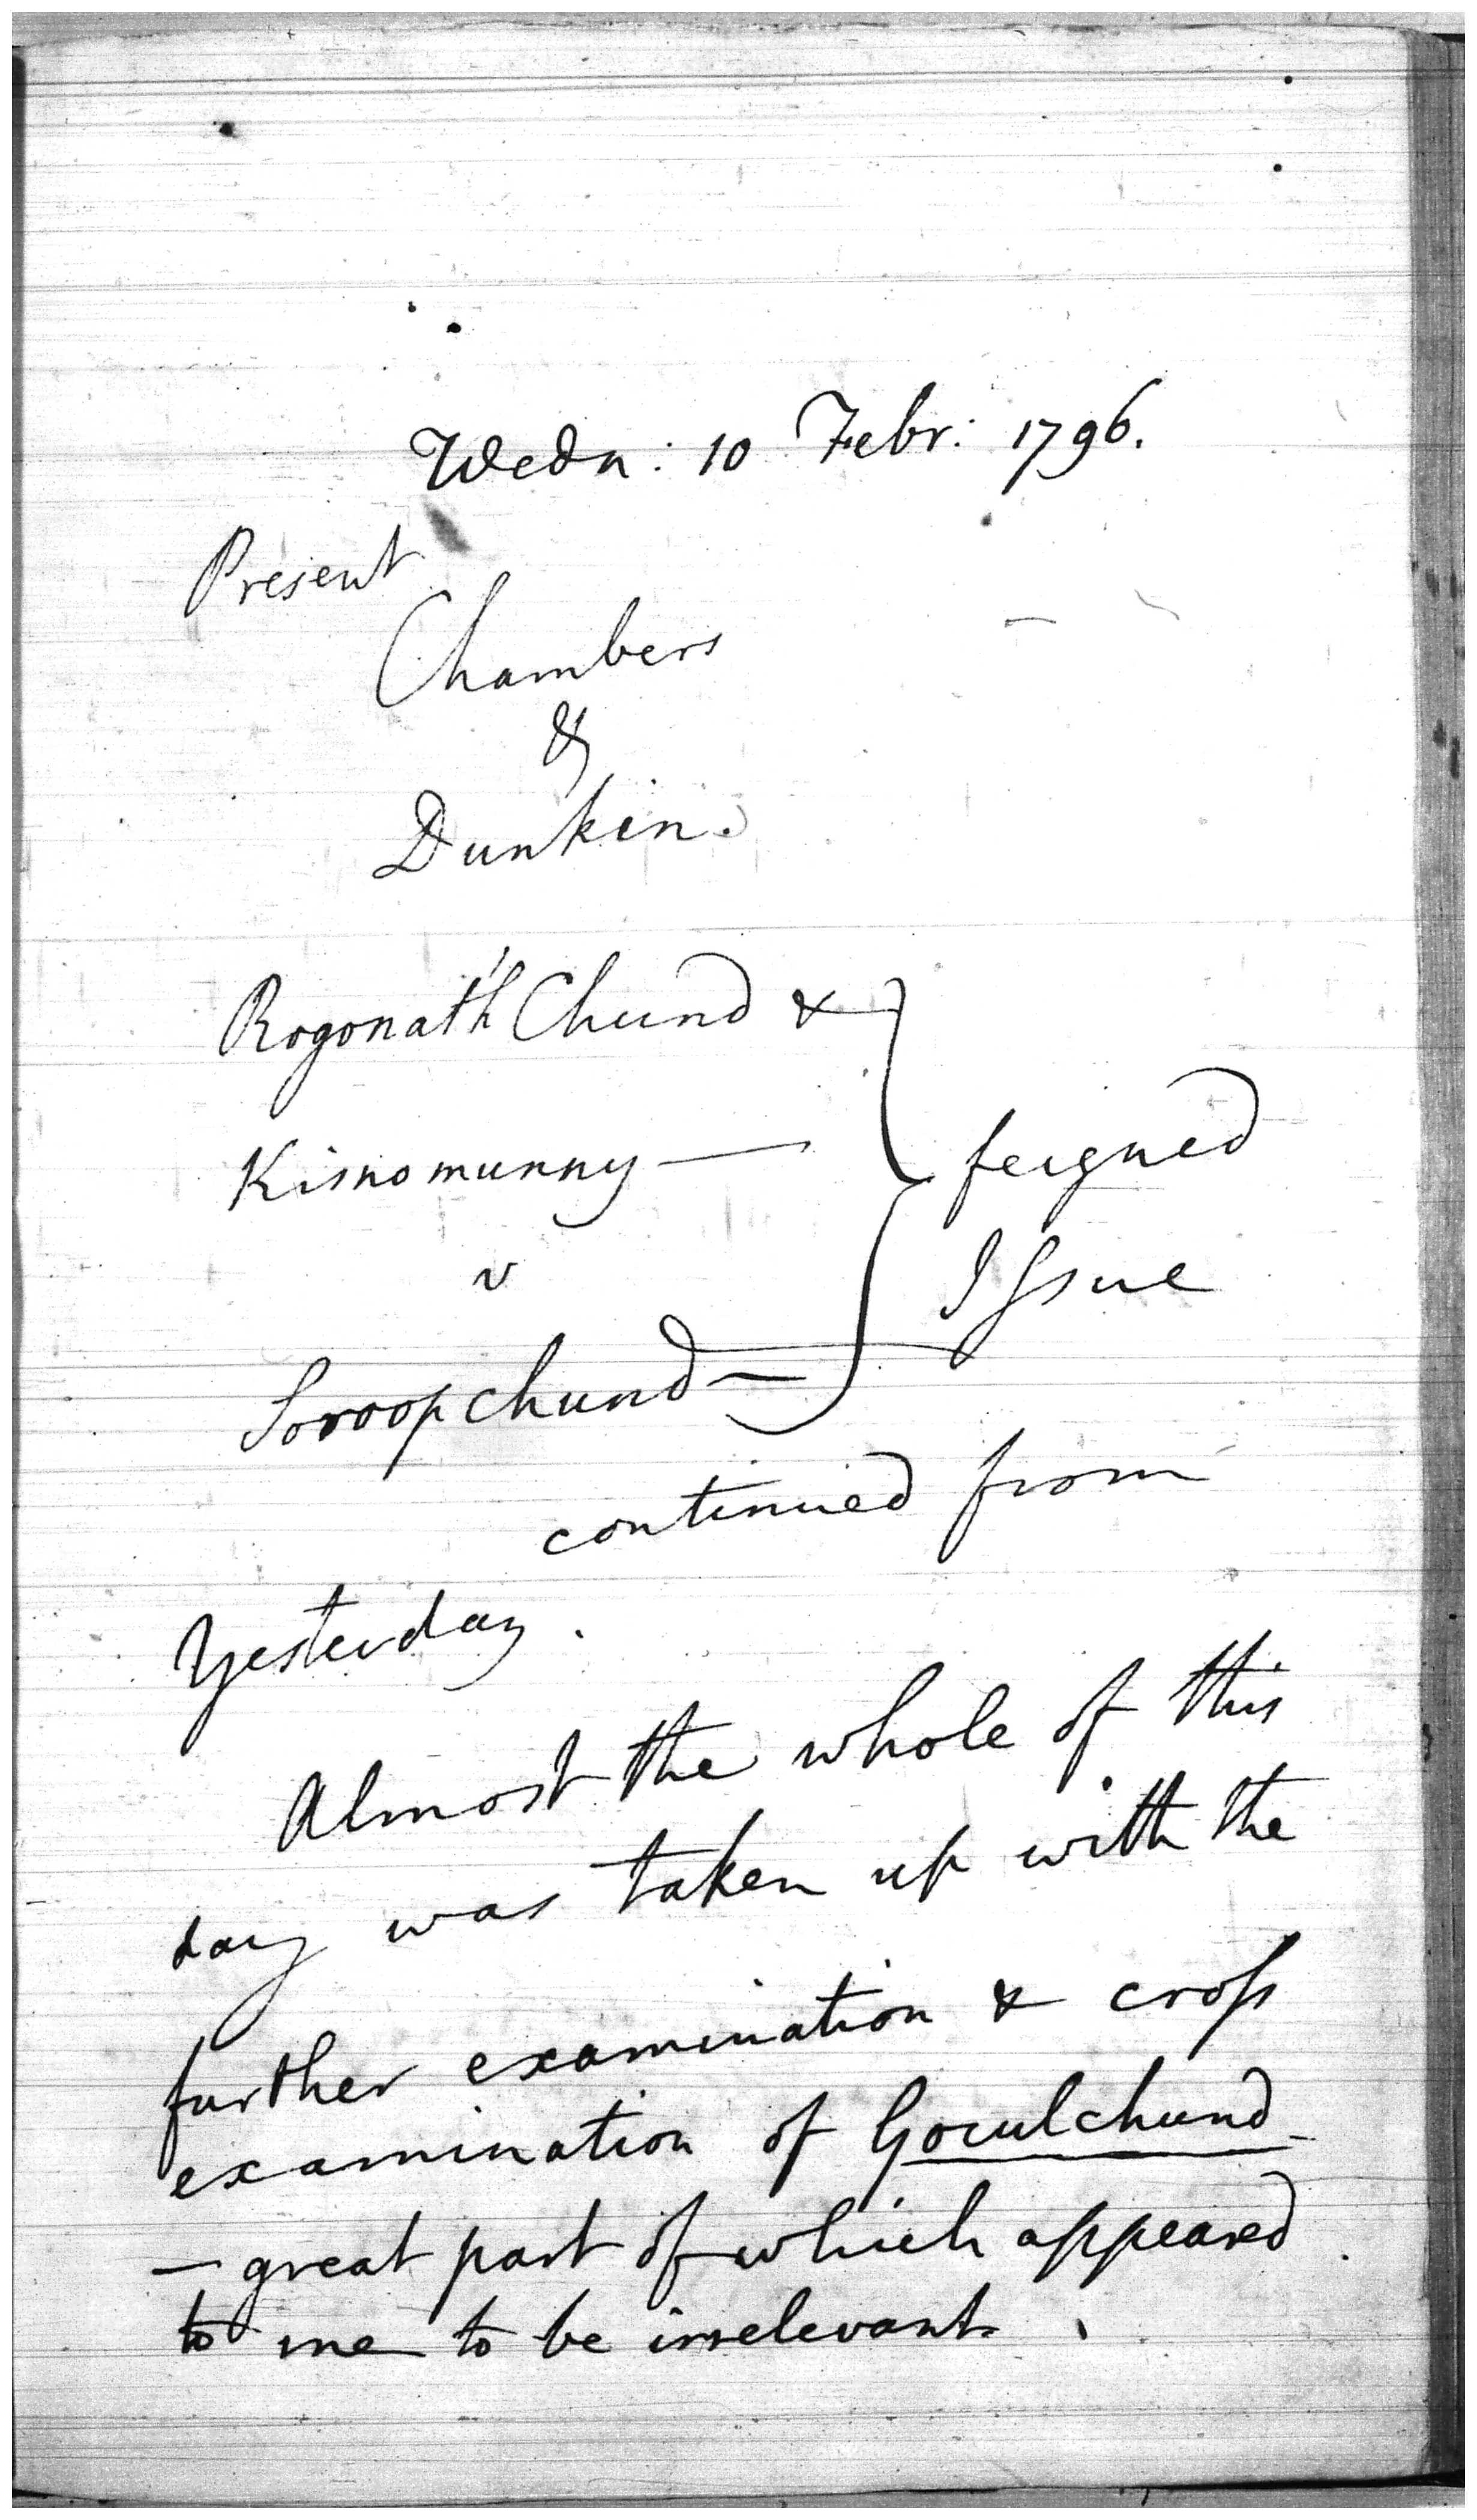 Wedn: 10 Febr: 1796.
Present
Chambers
&
Dunkin.
Rogonath Chund &
Kisnomunny — feigned
v
Issue
Soroopchund —
continued from
Yesterday.
Almost the whole of this
day was taken up with the
further examination & cross
examination of Goculchund
— great part of which appeared
to me to be irrelevant.